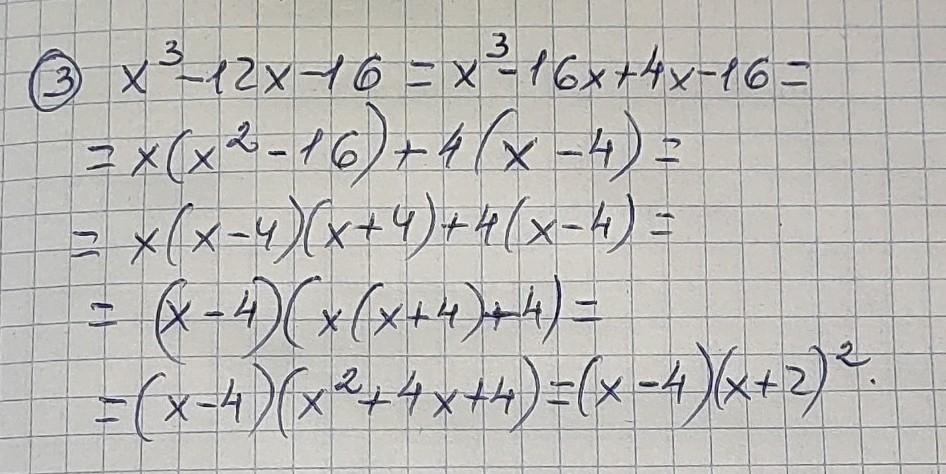 ③ x³-12x-16 = x³-16x+4x-16 =
= x(x²-16)+4(x-4) =
= x(x-4)(x+4)+4(x-4) =
= (x-4)(x(x+4)+4) =
= (x-4)(x²+4x+4) = (x-4)(x+2)².